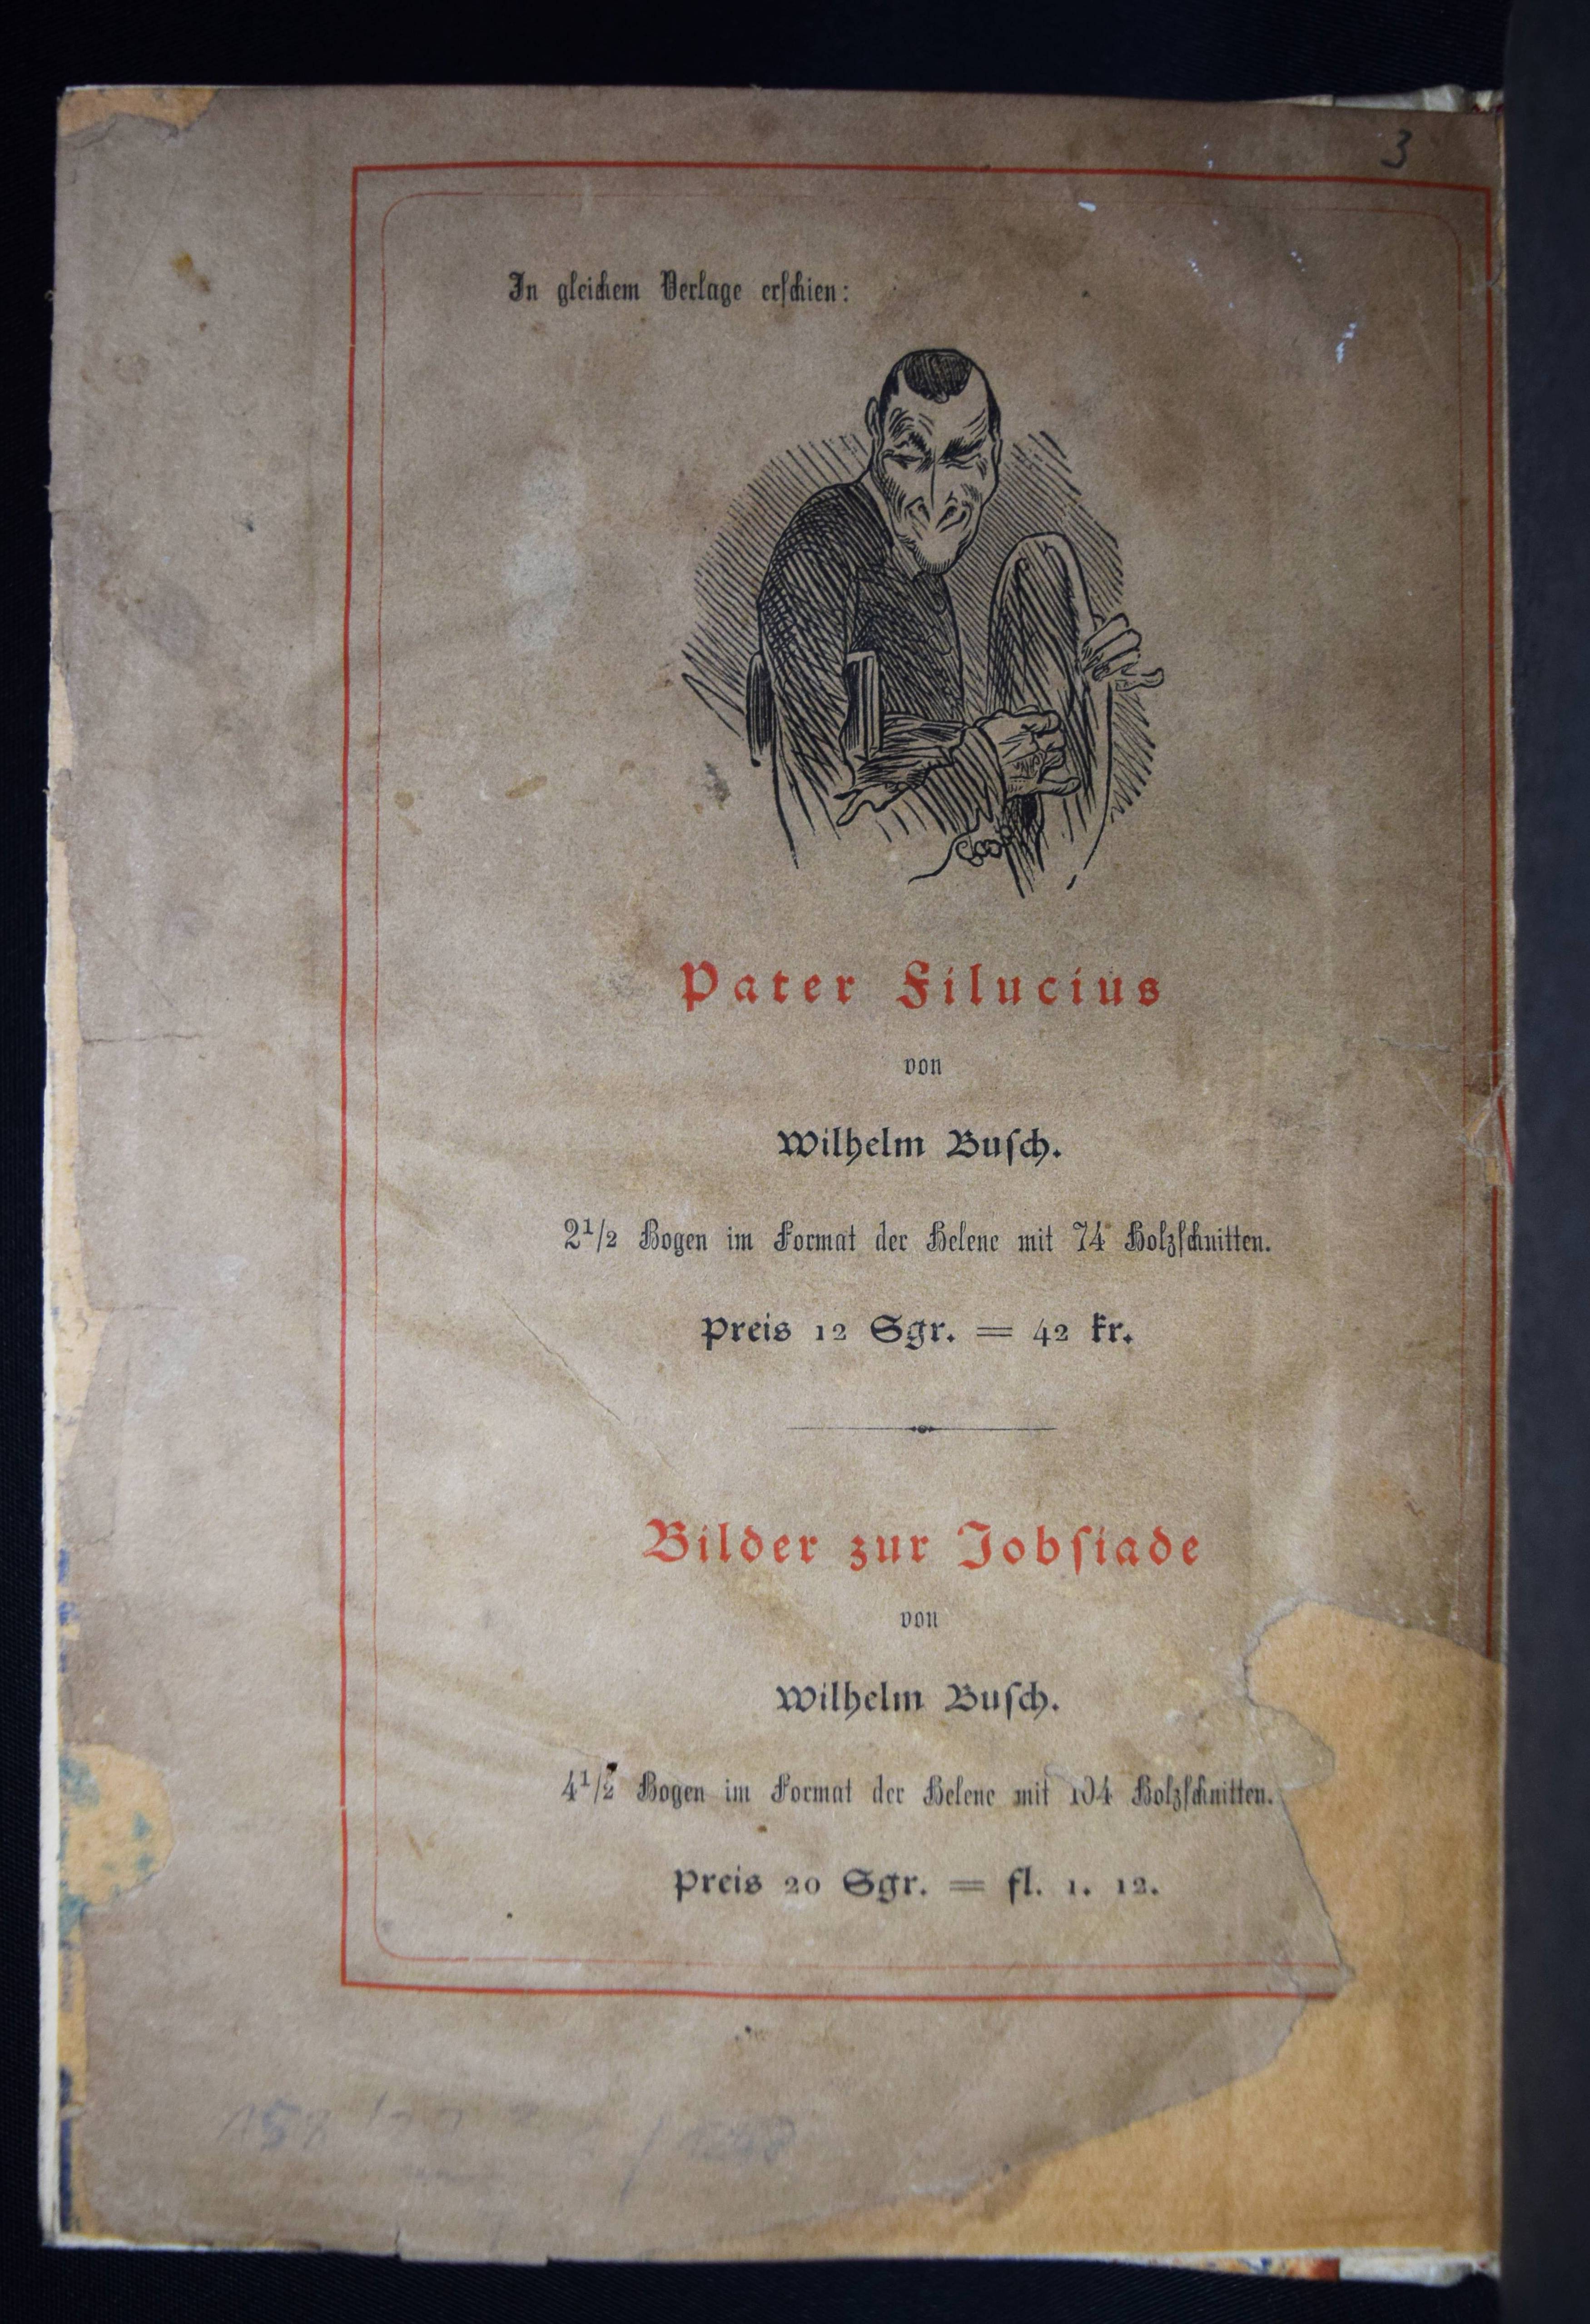 3
In gleichem Verlage erſchien:
Pater Filucius
von
Wilhelm Buſch.
2¹/₂ Bogen im Format der Helene mit 74 Holzſchnitten.
Preis 12 Sgr. = 42 kr.
Bilder zur Jobſiade
von
Wilhelm Buſch.
4¹/₂ Bogen im Format der Helene mit 104 Holzſchnitten.
Preis 20 Sgr. = fl. 1. 12.